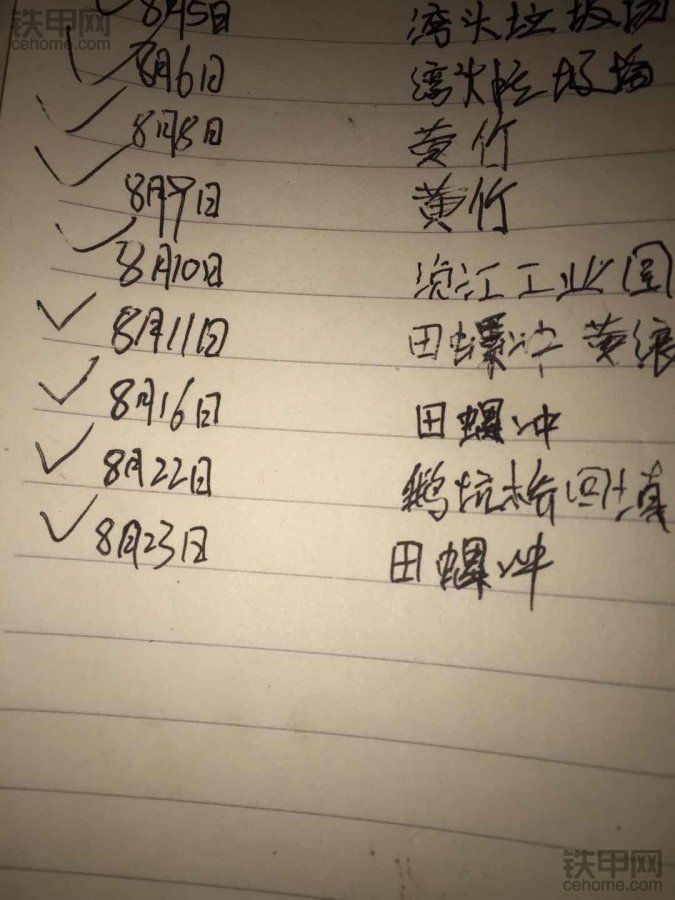 铁甲网
cehome.com
8月5日 湾头垃圾场
8月6日 湾头垃圾场
8月8日 黄竹
8月9日 黄竹
8月10日 江工业园
8月11日 田螺冲 黄
8月16日 田螺冲
8月22日 鹅坑桥回填
8月23日 田螺冲
铁甲网
cehome.com